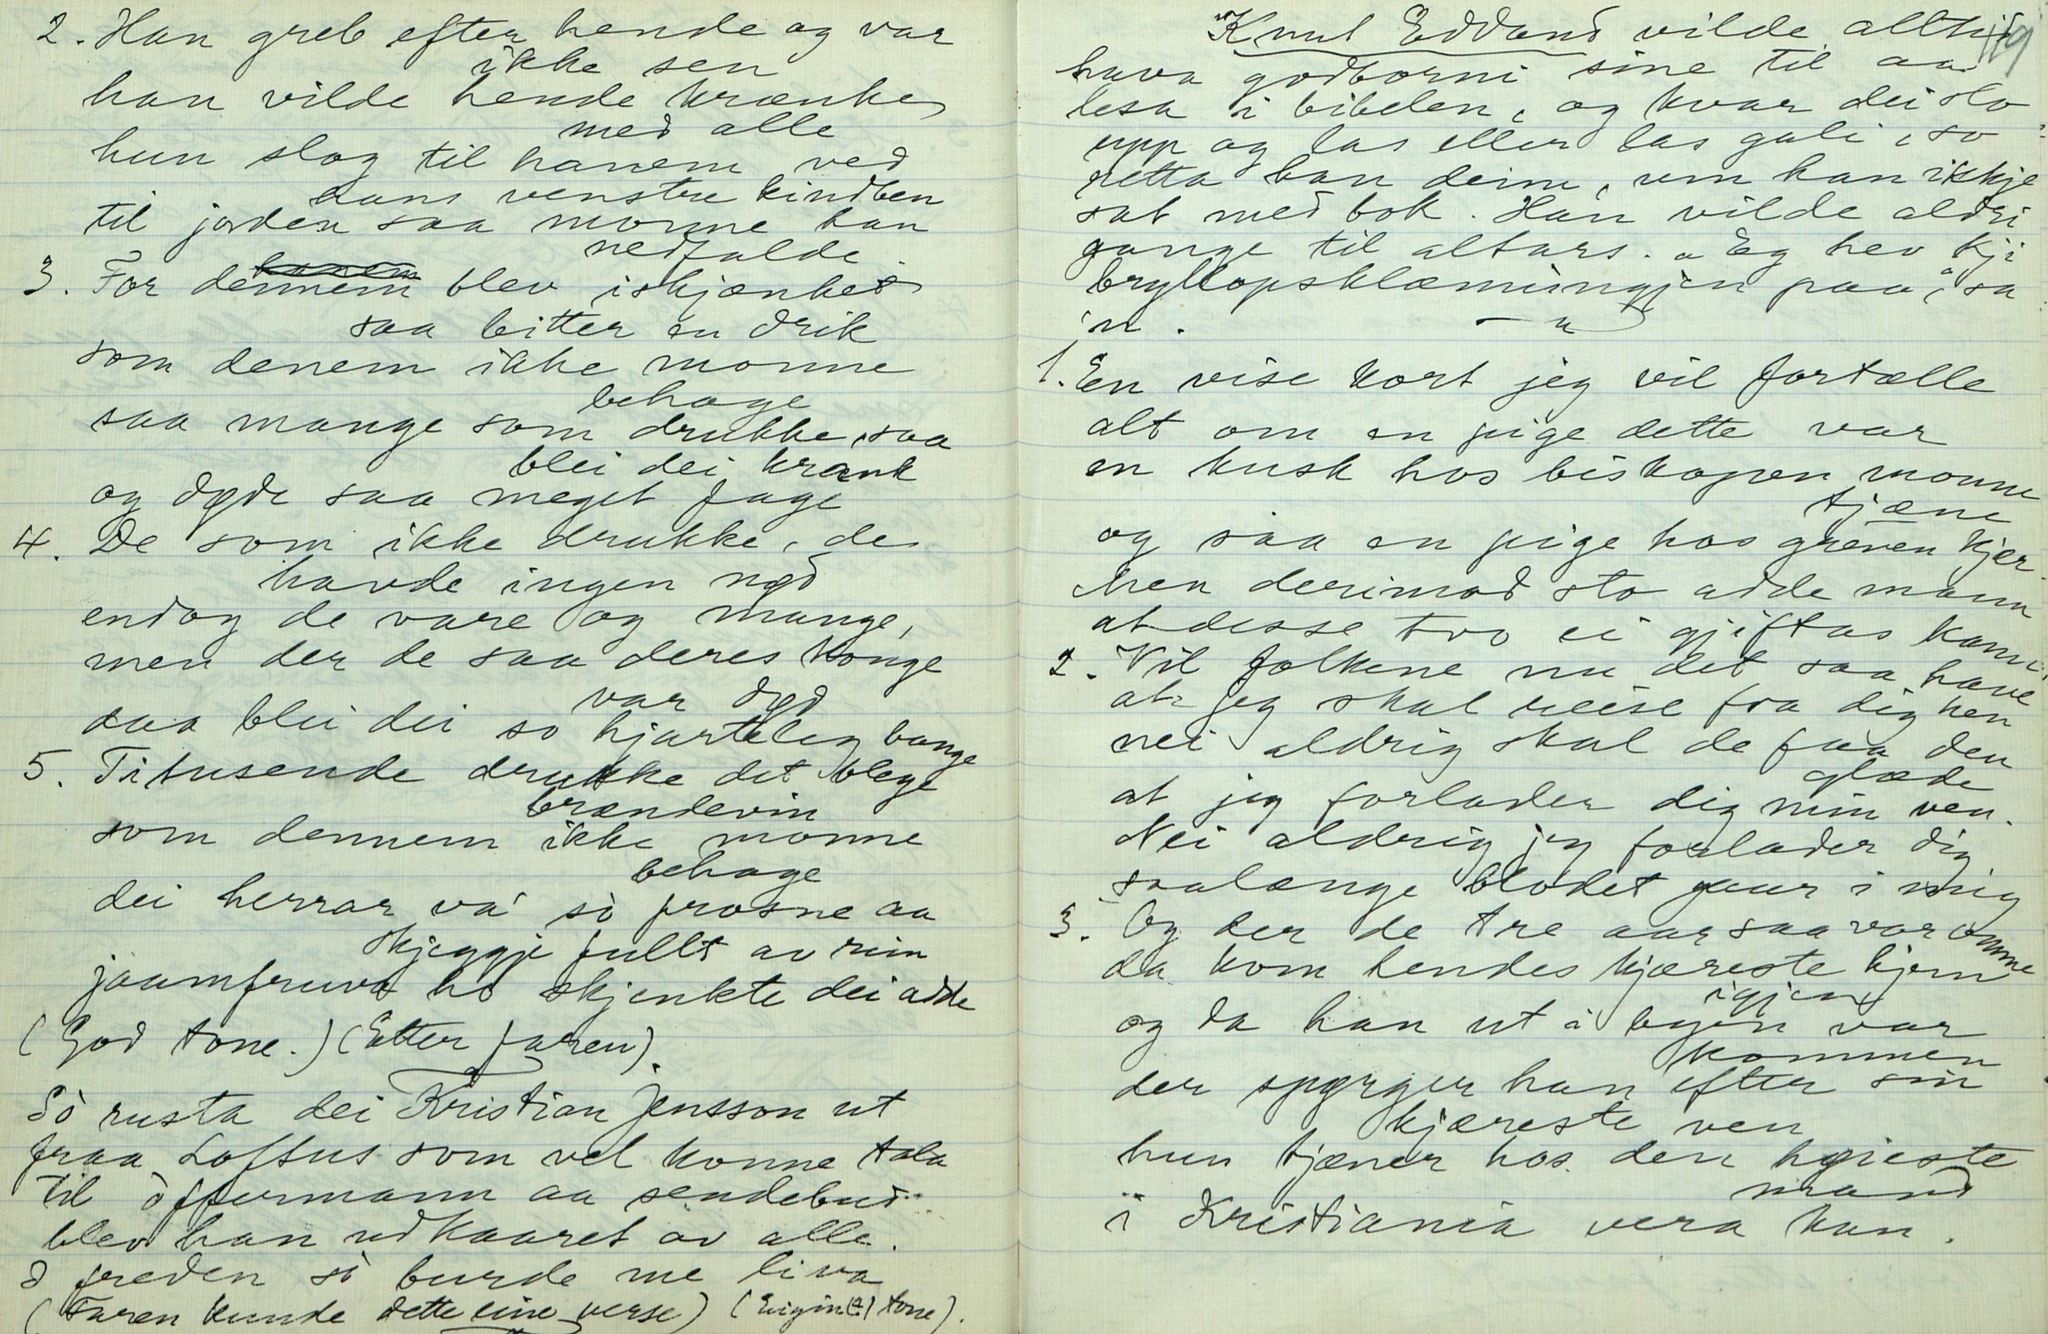 2. Han greb efter hende og var
ikke sen
han vilde hende krænke
hun slog til hanem ved
med alle
hans venstre kindben
til jorden saa monne han
nedfalde.
3. For dennem blev iskjænket
saa bitter en drik
som denem ikke monne
behage
saa mange som drukke, saa
blei dei krank
og døde saa meget fage
4. De som ikke drukke, de
havde ingen nød
endog de vare og mange,
men der de saa deres konge
var død
saa blei dei so hjarteleg bange
5. Titusende drukke det blege
brændevin
som dennem ikke monne
behage
dei herrar vá so frosne aa
skjeggje fullt av rim
jaamfruva ho skjenkte dei adde
(God tone.) (Etter faren).
So rusta dei Kristian Jensson ut
fraa Loftus som vel konne tala
til offermann aa sendebud
blev han udkaaret av alle.
I freden so burde me liva
(Faren kunde dette eine verse) (Eigin(?) tone).
119
"Knut Eddand vilde alltid
hava godborni sine til aa
lesa i bibelen, og kvar dei slo
upp og las eller las gali, so
retta han deim, um han ikkje
sat med bok. Han vilde aldri
gange til altars. "Eg hev kji
bryllopsklæningjin paa", sa
'n.
1. En vise kort jeg vil fortælle
alt om en pige dette var
en kusk hos biskopen monne
tjæne
og saa en pige hos greven kjer
Men derimod sto adde mann
at disse two ei gjiftas kann
2. Vil folkene nu det saa have
at jeg skal reise fra dig hen
nei aldrig skal de faa den
glæde
at jeg forlader dig min ven.
Nei aldrig jeg forlader dig
saalænge blodet gaar i mig
3. Og der de tre aar saa var omme
da kom hendes kjæreste hjem
igjen
og da han ut i byen var
kommen
der spørger han efter sin
kjæreste ven
hun tjæner hos den høieste
mand
i Kristiania vera kan.